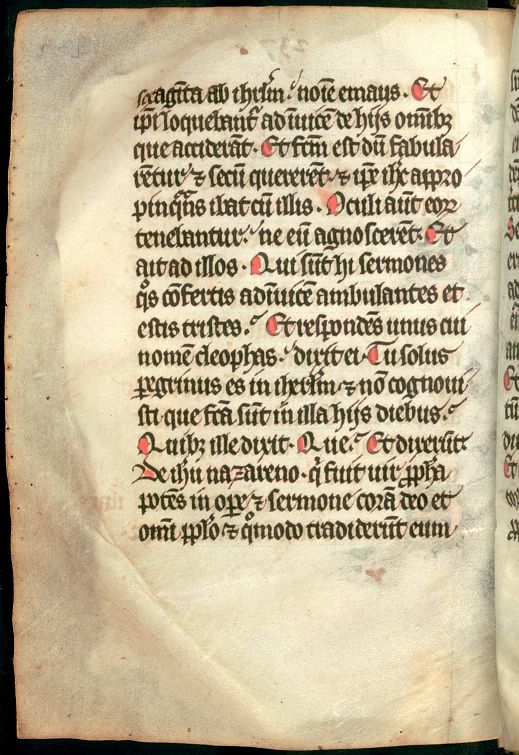 sexagīta ab ihrlm̄ noīe emaus. Et
ip̄i loquebant᷑ ad īuicē de hijs om̄ibꝫ
que acciderāt. Et fc̄m est dū fabula
rēt᷑ur ⁊ secū quererēt ⁊ ip̄e ihc̄ appro
pinqͣns ibat cū illis. Oculi aūt eor
tenebantur ne eū agnoscerēt. Et
ait ad illos. Qui sūt hi sermones
qͦs cōfertis ad īuicē ambulantes et
estis tristes. Et respondēs unus cui
nomē cleophas. dixit ei. Tu solus
ꝑegrinus es in iherl̄m ⁊ nō cognoui
sti que fc̄a sūt in illa hijs diebus.
Quibꝫ ille dixit. Que. Et dixerūt
De ihū nazareno. qͥ fuit uir ꝓph̄a
potēs in oꝑe ⁊ sermone corā deo et
om̄i ppl̄o ⁊ qͦmodo tradiderūt eum